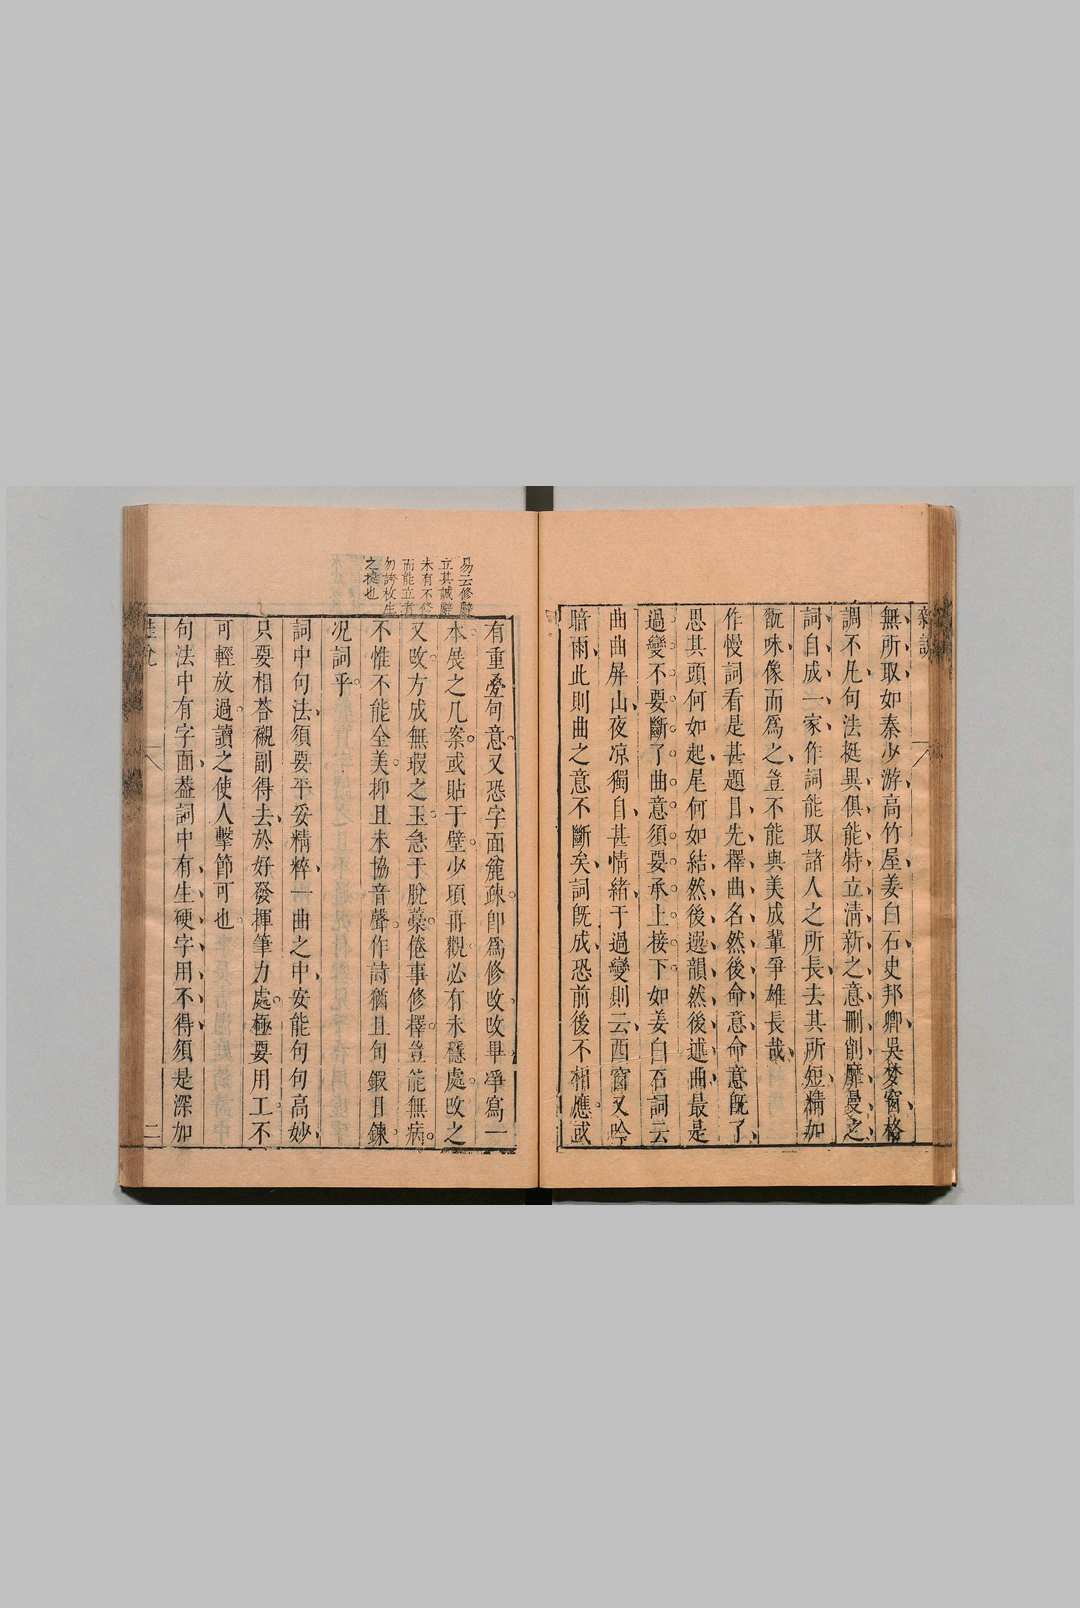 雜說
無所取如秦少游高竹屋姜白石史邦卿吳夢窗格
調不凡句法挺異俱能特立清新之意刪削靡曼之
詞自成一家作詞能取諸人之所長去其所短精加
翫味像而爲之豈不能與美成輩爭雄長哉
作慢詞看是甚題目先擇曲名然後命意命意既了
思其頭何如起尾何如結然後選韻然後述曲最是
過變不要斷了曲意須要承上接下如姜白石詞云
曲曲屏山夜凉獨自甚情緒于過變則云西窗又吟
暗雨此則曲之意不斷矣詞既成恐前後不相應或
易云修辭
立其誠辭
未有不修
而能立者
勿誇枚生
之捷也
有重疊句意又恐字面麄疎卽爲修改改畢淨寫一
本展之几案或貼于壁少頃再觀必有未穩處改之
又改方成無瑕之玉急于脫藁倦事修擇豈能無病
不惟不能全美抑且未協音聲作詩猶且旬鍜月鍊
况詞乎
詞中句法須要平妥精粹一曲之中安能句句高妙
只要相荅襯副得去於好發揮筆力處極要用工不
可輕放過讀之使人擊節可也
句法中有字面葢詞中有生硬字用不得須是深加
二